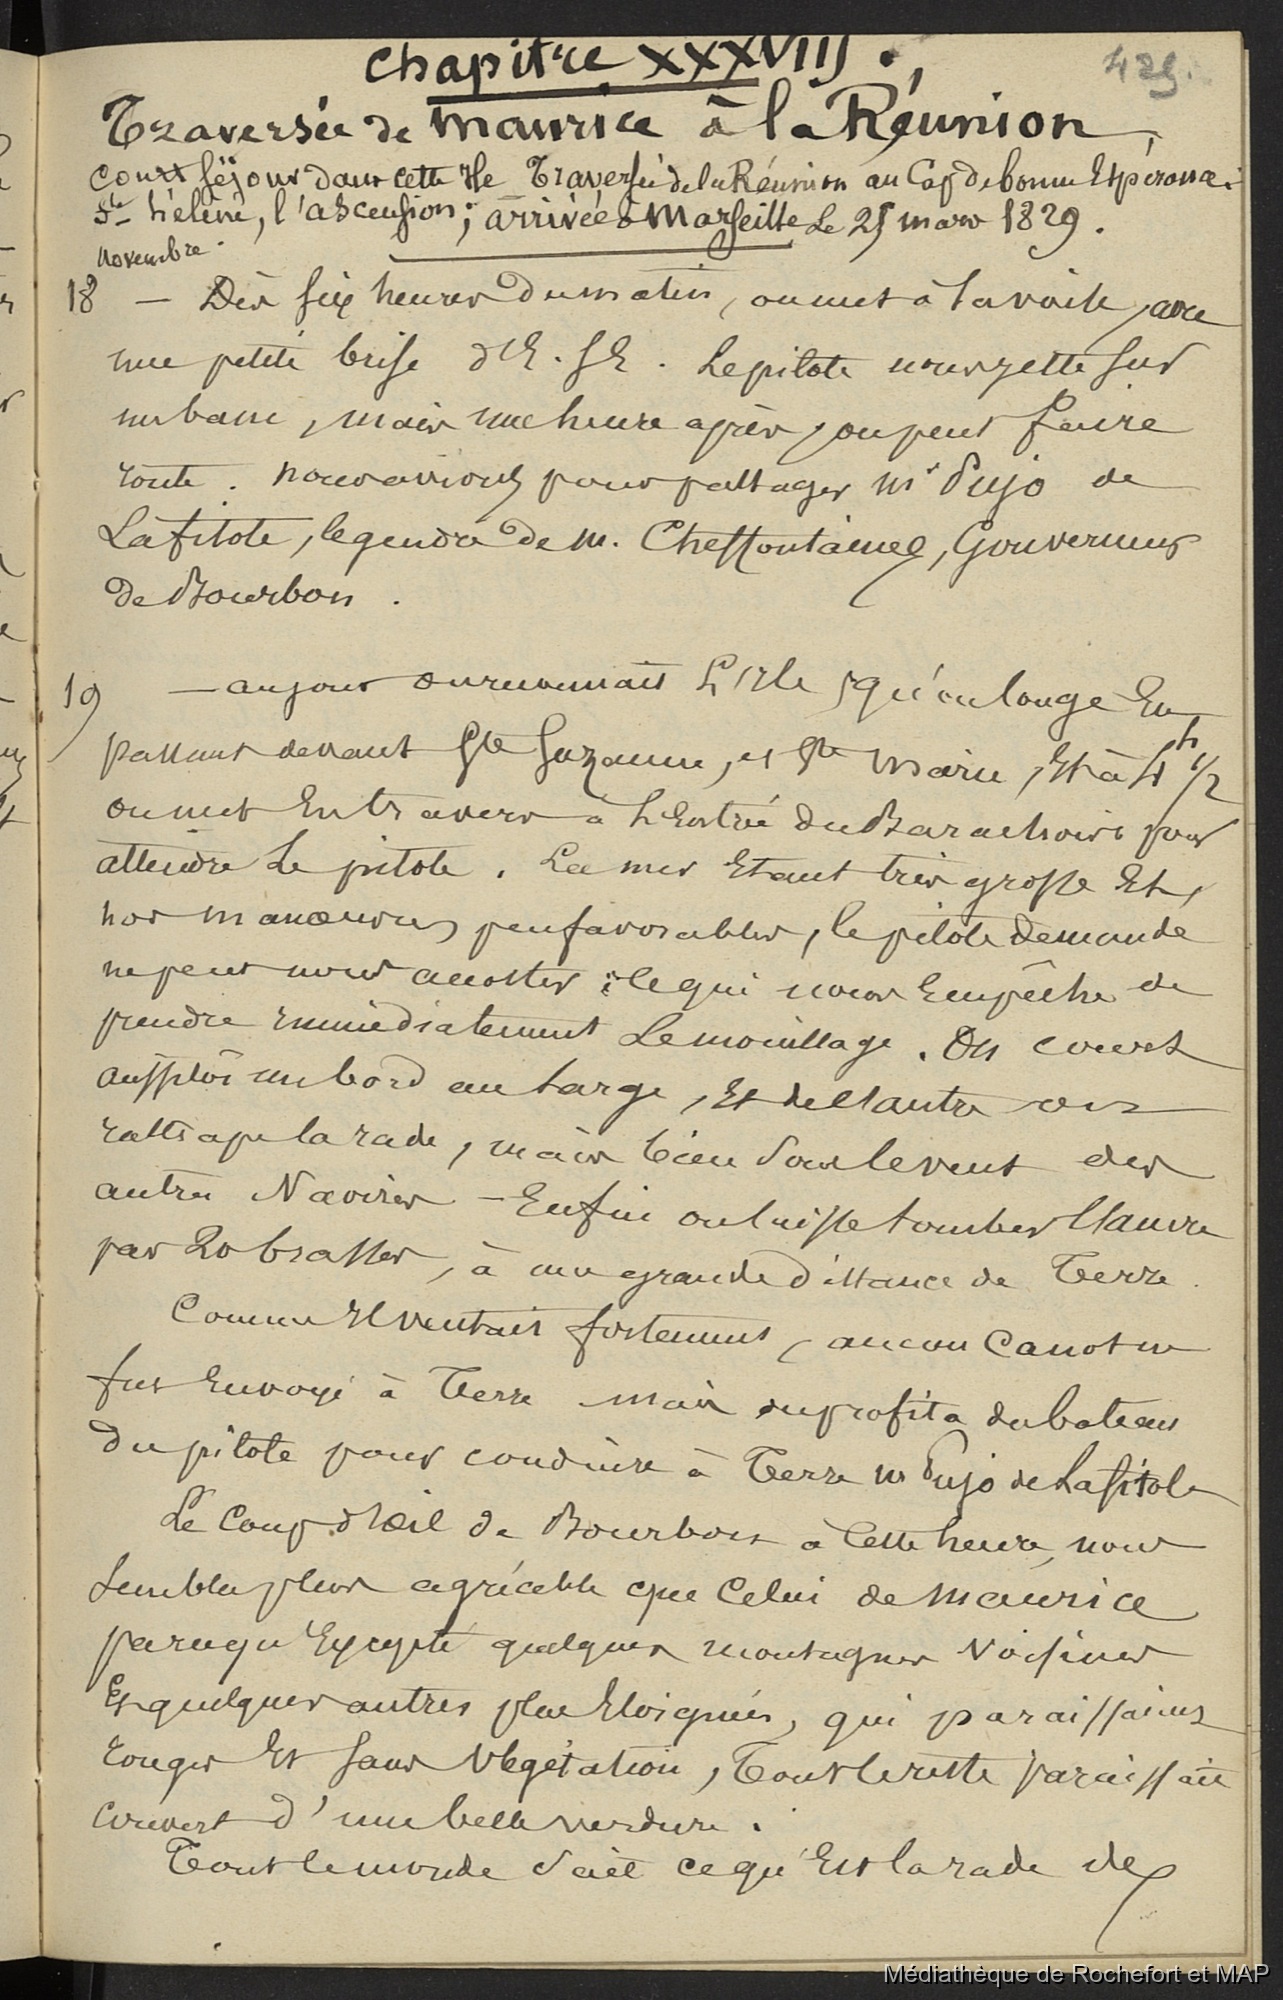 Chapitre XXXVIII.
429.
Traversée de Maurice à la Réunion,
Court séjour dans cette Ile Traversée de la Réunion au Cap de bonne Espérance.
Ste hélène, l'ascension; arrivée à Marseille le 25 mars 1829.
Novembre.
18 — Dès six heures du matin, on met à la voile, avec
une petite brise d'E. SE. Le pilote nous jette sur
un banc, mais une heure après, on peut faire
route. nous avions pour passager Mr Pujo de
Lafitole, le gendre de M. Cheffontaines, Gouverneur
de Bourbon.
19 — au jour on reconnait l'Ile, qu'on longe En
passant devant Ste Suzanne, et Ste Marie, Et à 4h 1/2
on met En travers à l'Entrée du Barachois pour
attendre le pilote. La mer Etant très grosse Et,
nos manœuvres peu favorables, le pilote demandé
ne peut nous accoster; ce qui nous Empêche de
prendre immédiatement le mouillage. On courut
aussitôt un bord au large, Et de l'autre on
rattrape la rade, mais bien sous le vent des
autres Navires — Enfin on laisse tomber l'ancre
par 20 brasses, à une grande distance de Terre.
Comme Il ventait fortement, aucun Canot ne
fut Envoyé à Terre mais on profita du bateau
du pilote pour conduire à Terre Mr Pujo de Lafitole
Le Coup d'Œil de Bourbon à Cette heure, nous
sembla plus agréable que Celui de Maurice
parcequ'Excepté quelques montagnes voisines
Et quelques autres plus Eloignées, qui paraissaient
rouges Et sans Végétation, Tout le reste paraissait
couvert d'une belle verdure.
Tout le monde sait ce qu'Est la rade de
Médiathèque de Rochefort et MAP